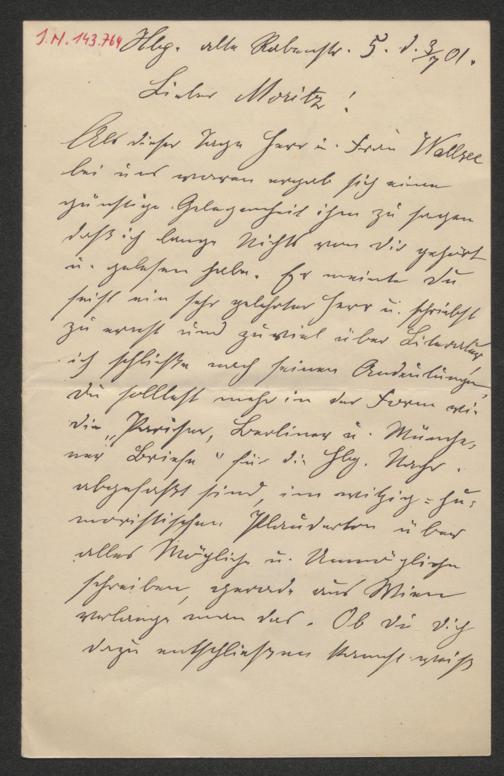 I.N. 143.764
Hbg. alte Rabenstr. 5. d. 3/7 01.
Lieber Moritz!
Als dieser Tage Herr u. Frau Wallsee
bei uns waren ergab sich eine
günstige Gelegenheit ihm zu sagen
daß ich lange Nichts von Dir gehört
u. gelesen habe. Er meinte Du
seist ein sehr gelehrter Herr u. schriebst
zu ernst und zuviel über Literatur,
ich schließe nach seinen Andeutungen,
Du solltest mehr in der Form wie
die "Pariser, Berliner u. Münche-
ner Briefe" für die Hbg. Nachr.
abgefaßt sind, im witzig-hu-
moristischen Plauderton über
alles Mögliche u. Unmögliche
schreiben, gerade aus Wien
verlange man das. Ob Du Dich
dazu entschließen kannst weiß